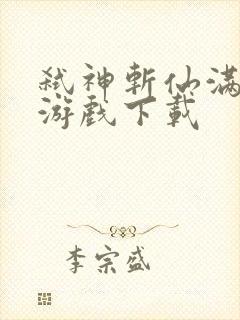 弑神斬仙滿
游戲下載
李宗盛